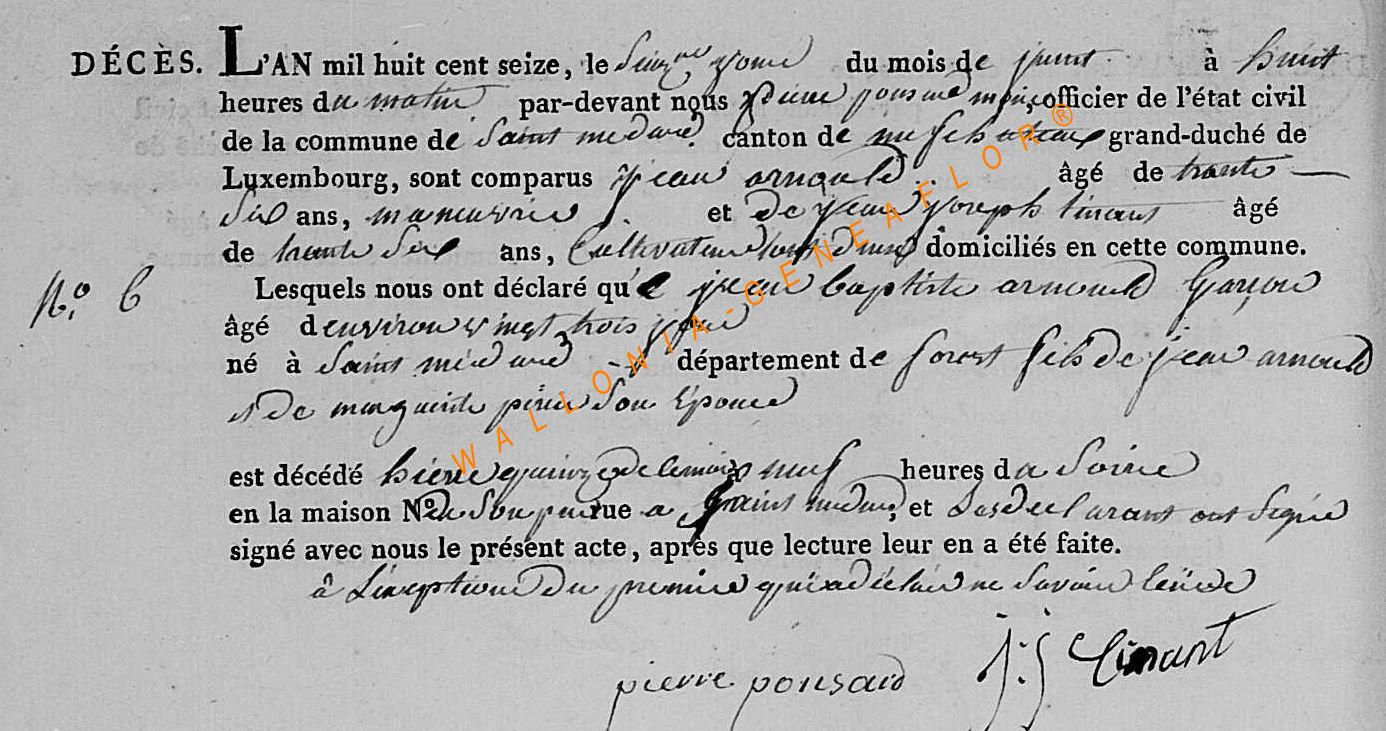 DÉCÈS. L'AN mil huit cent seize, le Seizme jour du mois de juint à huit
heures du matin par-devant nous pierre ponsard officier de l'état civil
de la commune de Saint medard. canton de neufchateau grand-duché de
Luxembourg, sont comparus jean arnould âgé de trante
Six ans, et de jean joseph linant âgé
de trante Six ans, Cultivateur tous deux domiciliés en cette commune.
N.o 6 Lesquels nous ont déclaré que jean baptiste arnould Garçon
âgé denviron vingt trois jour
né à Saint médard département de forest fils de jean arnould
et De marguerite Son Epouse
est décédé hiere quinze de le mois neuf heures du Soire
en la maison No. de Son pere rue a Saint medard, et Les declarant ont Signé
signé avec nous le présent acte, après que lecture leur en a été faite.
à Lexeption Du premier qui a déclaré ne Savoir
pierre ponsard J: J Linant
WALLONIA-GENEAFLOR®